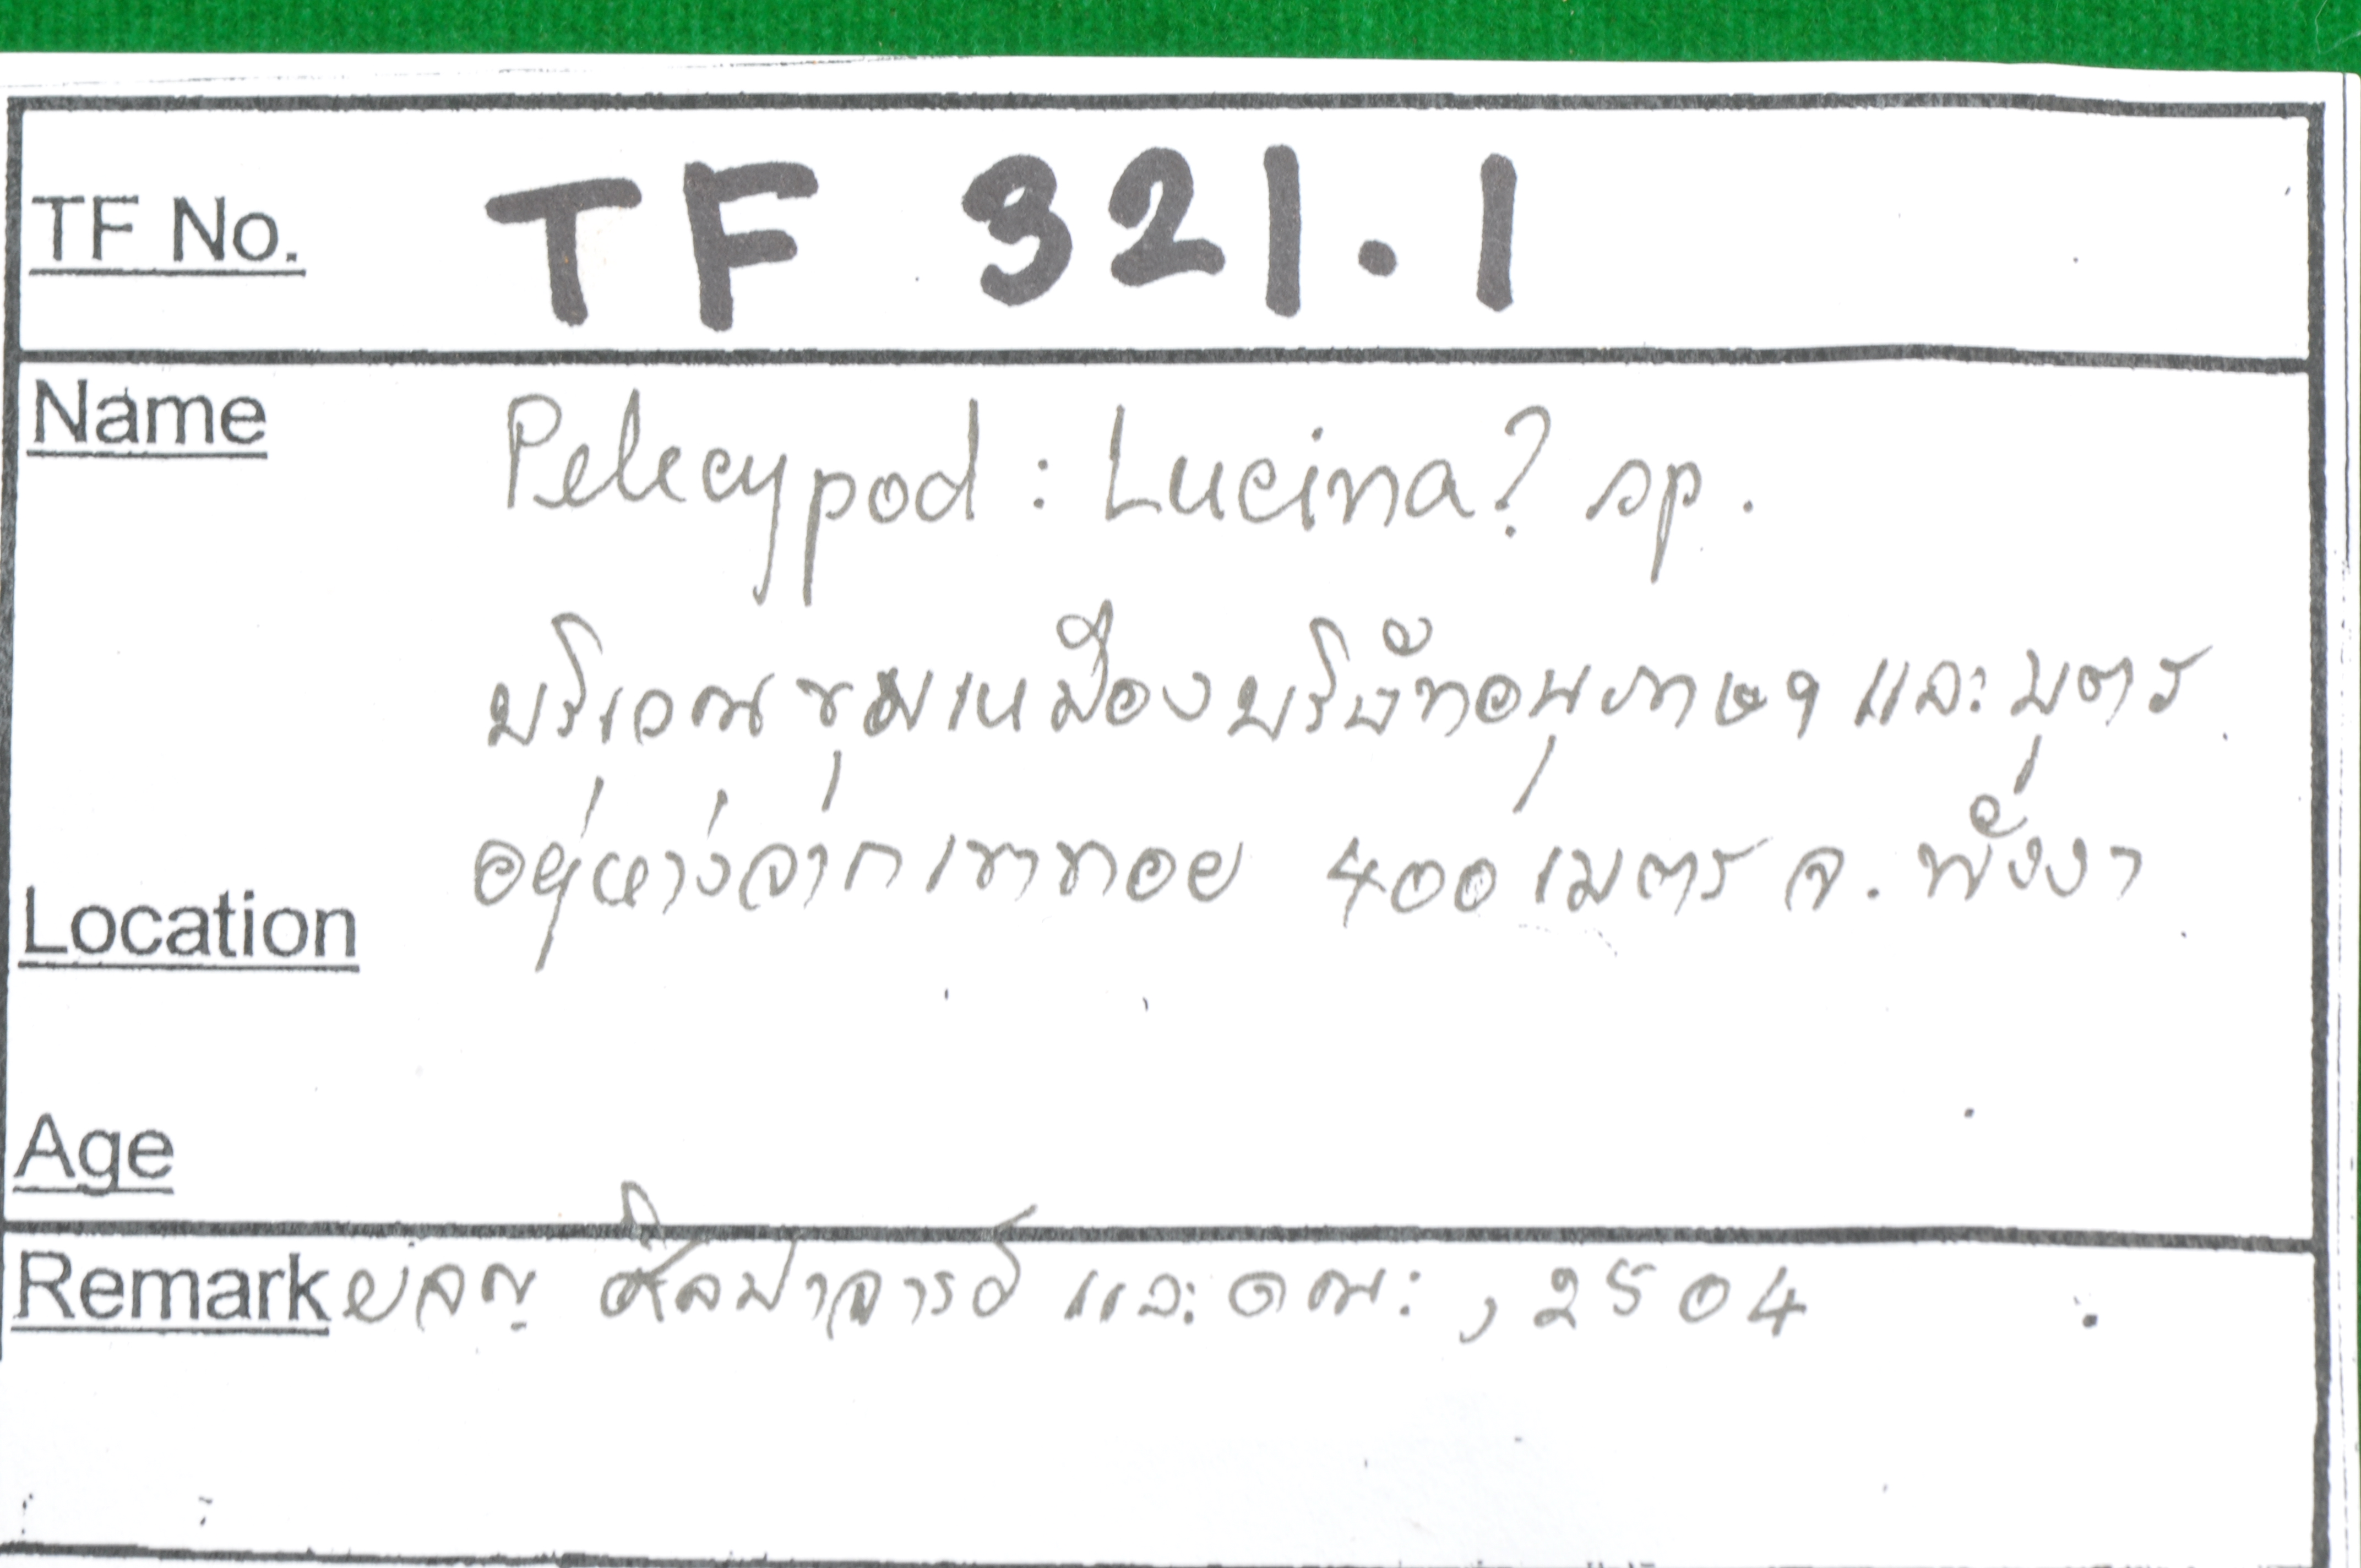 TF No. TF 321.1
Name Pelecypod : Lucina? sp.
บริเวณขุมเหมืองบริษัทอนุภาษฯ และบุตร
อยู่ห่างจากเขาทอย 400 เมตร จ. พังงา
Location
Age
Remark ศิลปาจารย์ และคณะ , 2504